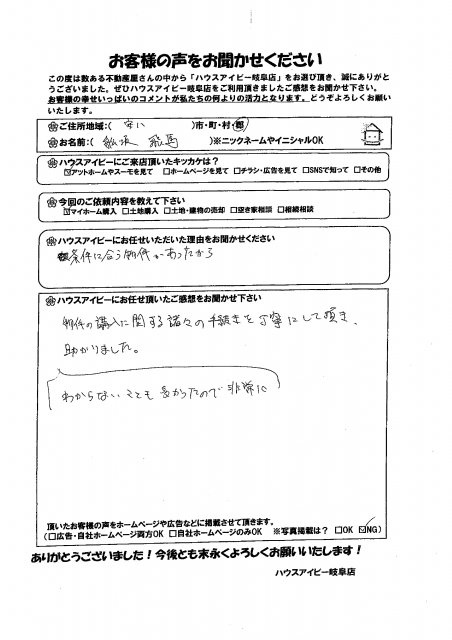 お客様の声をお聞かせください
この度は数ある不動産屋さんの中から「ハウスアイビー岐阜店」をお選び頂き、誠にありがと
うございました。ぜひハウスアイビー岐阜店をご利用頂きましたご感想をお聞かせ下さい。
お客様の幸せいっぱいのコメントが私たちの何よりの活力となります。どうぞよろしくお願い
いたします。
ご住所地域:( 安八 )市・町・村・郡
お名前:( 飛馬 )※ニックネームやイニシャルOK
ハウスアイビーにご来店頂いたキッカケは?
☑アットホームやスーモを見て □ホームページを見て □チラシ・広告を見て □SNSで知って □その他
今回のご依頼内容を教えて下さい
☑マイホーム購入 □土地購入 □土地・建物の売却 □空き家相談 □相続相談
ハウスアイビーにお任せいただいた理由をお聞かせください
条件に合う物件があったから
ハウスアイビーにお任せ頂いたご感想をお聞かせ下さい
物件の購入に関する諸々の手続きを丁寧にして頂き、
助かりました。
わからないことも多かったので非常に
頂いたお客様の声をホームページや広告などに掲載させて頂きます。
(□広告・自社ホームページ両方OK □自社ホームページのみOK ※写真掲載は? □OK ☑NG)
ありがとうございました!今後とも末永くよろしくお願いいたします!
ハウスアイビー岐阜店